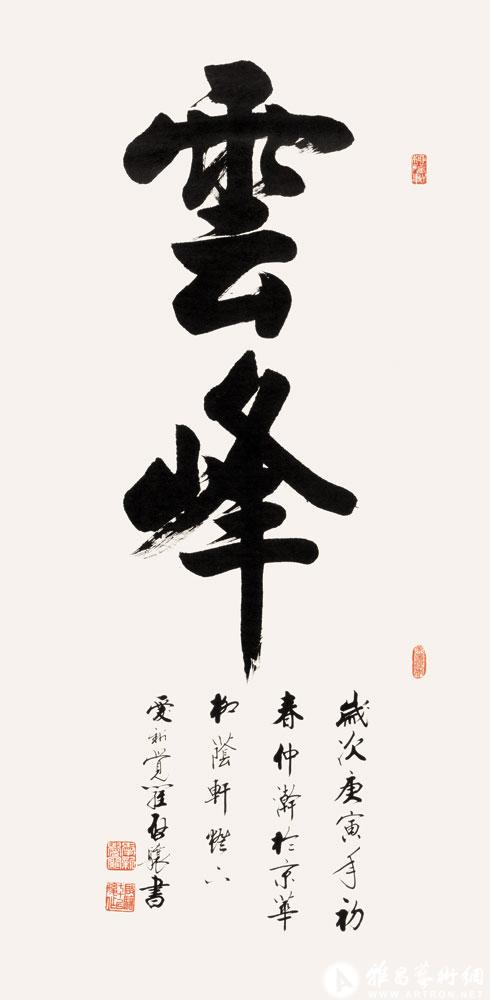 雲峰
歲次庚寅年初
春仲瀚於京華
柳蔭軒燈下
愛新覺羅啟驤書
雅昌藝術網
WWW.ARTRON.NET